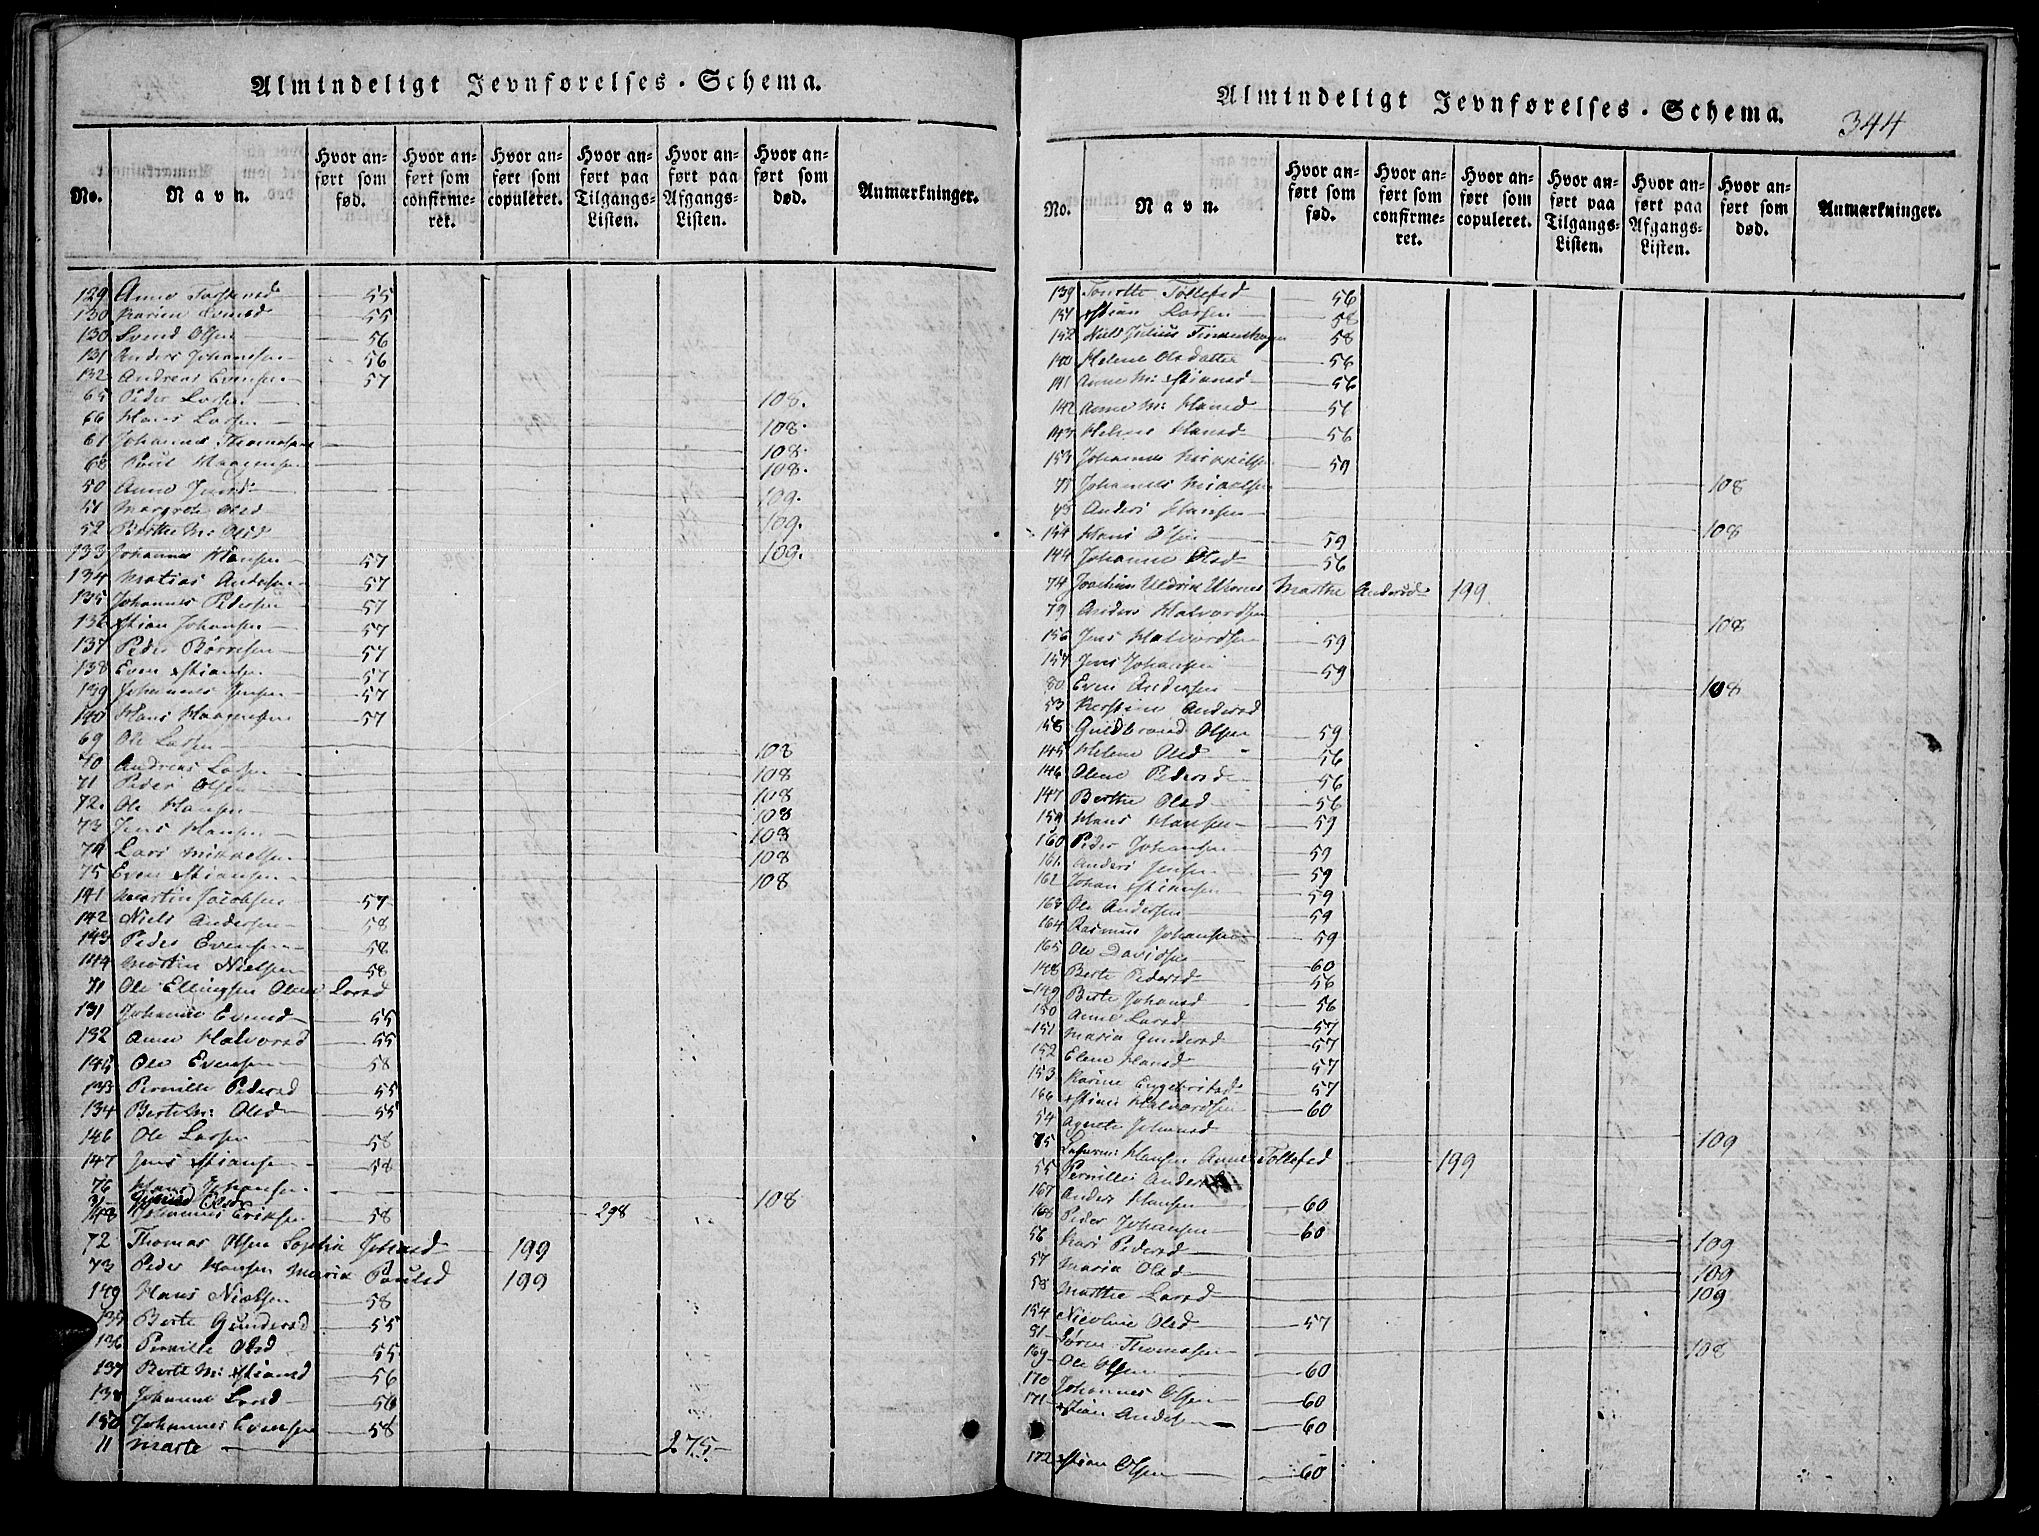 Almindeligt Jevnførelses-Schema.
No. Navn. Hvor anført som fød. Hvor anført som confirmeret. Hvor anført som copuleret. Hvor anført paa Tilgangs-Listen. Hvor anført paa Afgangs-Listen. Hvor anført som død. Anmærkninger.
129 Anne 55
130 Karine Evensd 55
130 Svend Olsen 56
131 Anders Johannsen 56
132 Andreas Evensen 57
65 Peder Larsen 108.
66 Hans Larsen 108.
67 Johannes Thomasen 108.
68 Poul Haagensen 108.
50 Anne Jensd 109.
51 Margrete Olsd 109.
52 Berthe M: Olsd 109.
133 Johannes Hansen 57
134 Matias Andersen 57
135 Johannes Pedersen 57
136 Xstian Johansen 57
137 Peder Børresen 57
138 Even Xstiansen 57
139 Johannes Jensen 57
140 Hans Haagensen 57
69 Ole Larsen 108
70 Andreas Larsen 108
71 Peder Olsen 108
72. Ole Hansen 108
73 Jens Hansen 108
74 Lars Mikkelsen 108
75 Even Xstiansen 108
141 Martin Jacobsen 57
142 Niels Andersen 58
143 Peder Evensen 58
144 Martin Nielsen 58
71 Ole Ellingsen Olene Larsd
131 Johanne Evensd 55
132 Anne Halvorsd 55
145 Ole Evensen 58
133 Pernille Pedersd 55
134 Berte M: Olsd 55
146 Ole Larsen 58
147 Jens Xstiansen 58
76 Hans Johansen 108
31 Olsdr 298
148 Johannes Eriksen 58
72 Thomas Olsen Sophia Johansd 199
73 Peder Hansen Maria Poulsd 199
149 Hans Nielsen 58
135 Berte Gundersd 55
136 Pernille Olsd 55
137 Berte M: Xstiansd 56
138 Johanne Larsd 56
150 Johannes Evensen 58
11 Marte 275
Almindeligt Jevnførelses-Schema. 344
No. Navn. Hvor anført som fød. Hvor anført som confirmeret. Hvor anført som copuleret. Hvor anført paa Tilgangs-Listen. Hvor anført paa Afgangs-Listen. Hvor anført som død. Anmærkninger.
139 Tollefsd 56
151 Xstian Larsen 58
152 Niels Julius Finkenhagen 58
140 Helene Olsdatter 56
141 Anne M: Xstiansd 56
142 Anne M: Hansd 56
143 Helene Hansd 56
153 Johannes Mikkelsen 59
77 Johannes Mikkelsen 108
Anders Hansen 108
154 Hans Olsen 59
144 Johanne Olsd 56
74 Joachim Uldrich Marthe Andersd 199
79 Anders Halvordsen 108
156 Jens Halvordsen 59
157 Jens Johansen 59
80 Even Andersen 108
53 Kerstine Andersd
158 Guldbrand Olsen 59
145 Helene Olsd 56
146 Olene Pedersd 56
147 Berthe Olsd 56
159 Hans Hansen 59
160 Peder Johansen 59
161 Anders Jensen 59
162 Johan Xstiansen 59
163 Ole Andersen 59
164 Rasmus Johansen 59
165 Ole Davidsen 60
148 Berte Pedersd 56
149 Berte Johansd 56
150 Anne Larsd 57
151 Maria Gundersd 57
152 Elene Hansd 57
153 Karine Engebretsd 57
166 Xstian Halvordsen 60
54 Agnete Johansd 109
75 Hansen Anne Tollefsd 199
55 Pernille Andersd
167 Anders Hansen 60
168 Peder Johansen 60
56 Kari Pedersd 109
57 Maria Olsd 109
58 Marthe Larsd 109
154 Nicoline Olsd 57
81 Søren Thomasen 108
169 Ole Olsen 60
170 Johannes Olsen 60
171 Xstian Andersen 60
172 Xstian Olsen 60